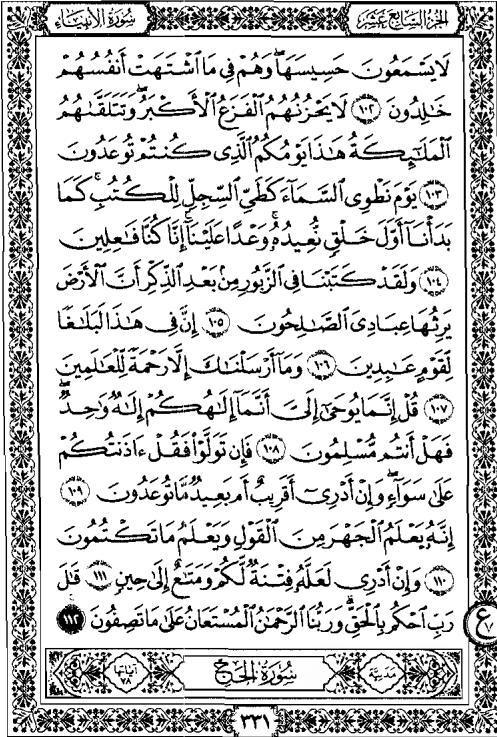 الجزء السابع عشر
سورة الأنبياء
لَا يَسْمَعُونَ حَسِيسَهَا ۖ وَهُمْ فِى مَا ٱشْتَهَتْ أَنفُسُهُمْ
خَـٰلِدُونَ ١٠٢ لَا يَحْزُنُهُمُ ٱلْفَزَعُ ٱلْأَكْبَرُ وَتَتَلَقَّىٰهُمُ
ٱلْمَلَـٰٓئِكَةُ هَـٰذَا يَوْمُكُمُ ٱلَّذِى كُنتُمْ تُوعَدُونَ
١٠٣ يَوْمَ نَطْوِى ٱلسَّمَآءَ كَطَىِّ ٱلسِّجِلِّ لِلْكُتُبِ ۚ كَمَا
بَدَأْنَآ أَوَّلَ خَلْقٍ نُّعِيدُهُۥ ۚ وَعْدًا عَلَيْنَآ ۚ إِنَّا كُنَّا فَـٰعِلِينَ
١٠٤ وَلَقَدْ كَتَبْنَا فِى ٱلزَّبُورِ مِنۢ بَعْدِ ٱلذِّكْرِ أَنَّ ٱلْأَرْضَ
يَرِثُهَا عِبَادِىَ ٱلصَّـٰلِحُونَ ١٠٥ إِنَّ فِى هَـٰذَا لَبَلَـٰغًا
لِّقَوْمٍ عَـٰبِدِينَ ١٠٦ وَمَآ أَرْسَلْنَـٰكَ إِلَّا رَحْمَةً لِّلْعَـٰلَمِينَ
١٠٧ قُلْ إِنَّمَا يُوحَىٰٓ إِلَىَّ أَنَّمَآ إِلَـٰهُكُمْ إِلَـٰهٌ وَٰحِدٌ ۖ
فَهَلْ أَنتُم مُّسْلِمُونَ ١٠٨ فَإِن تَوَلَّوْا۟ فَقُلْ ءَاذَنتُكُمْ
عَلَىٰ سَوَآءٍ ۖ وَإِنْ أَدْرِىٓ أَقَرِيبٌ أَم بَعِيدٌ مَّا تُوعَدُونَ ١٠٩
إِنَّهُۥ يَعْلَمُ ٱلْجَهْرَ مِنَ ٱلْقَوْلِ وَيَعْلَمُ مَا تَكْتُمُونَ
١١٠ وَإِنْ أَدْرِى لَعَلَّهُۥ فِتْنَةٌ لَّكُمْ وَمَتَـٰعٌ إِلَىٰ حِينٍ ١١١ قَـٰلَ
رَبِّ ٱحْكُم بِٱلْحَقِّ ۗ وَرَبُّنَا ٱلرَّحْمَـٰنُ ٱلْمُسْتَعَانُ عَلَىٰ مَا تَصِفُونَ ١١٢
ع
مدنية
سورة الحج
آياتها
٣٣١